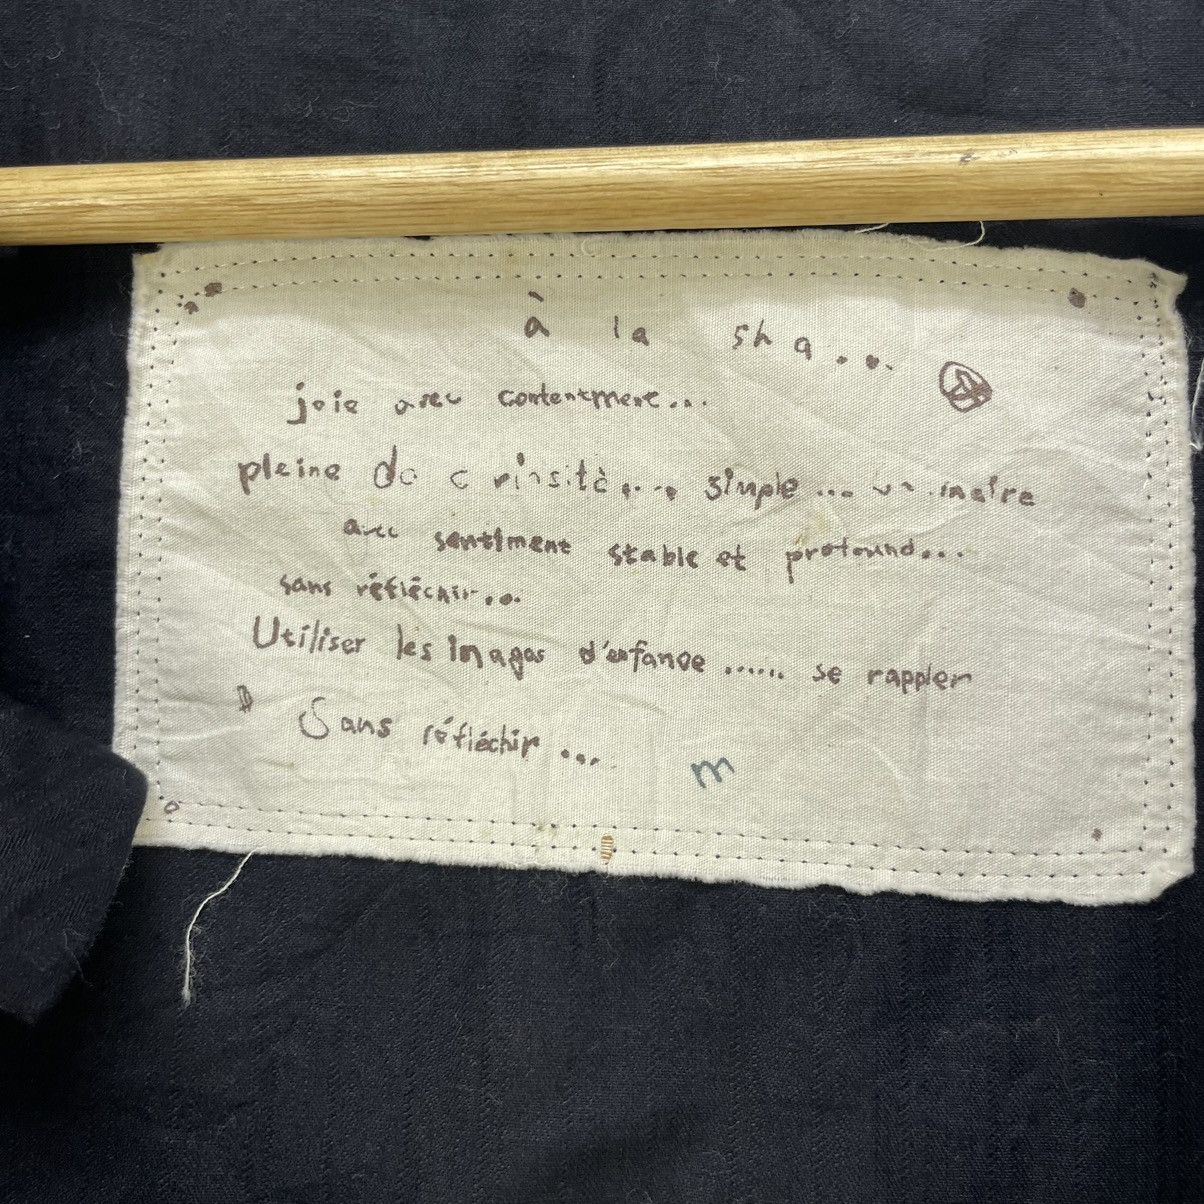 à la sha...
joie avec contentment...
pleine de c riosité.... simple ... maire
avec sentiment stable et protound...
sans réfléchir...
Utiliser les Images d'enfance ...... se rappler
Sans réfléchir ...
m